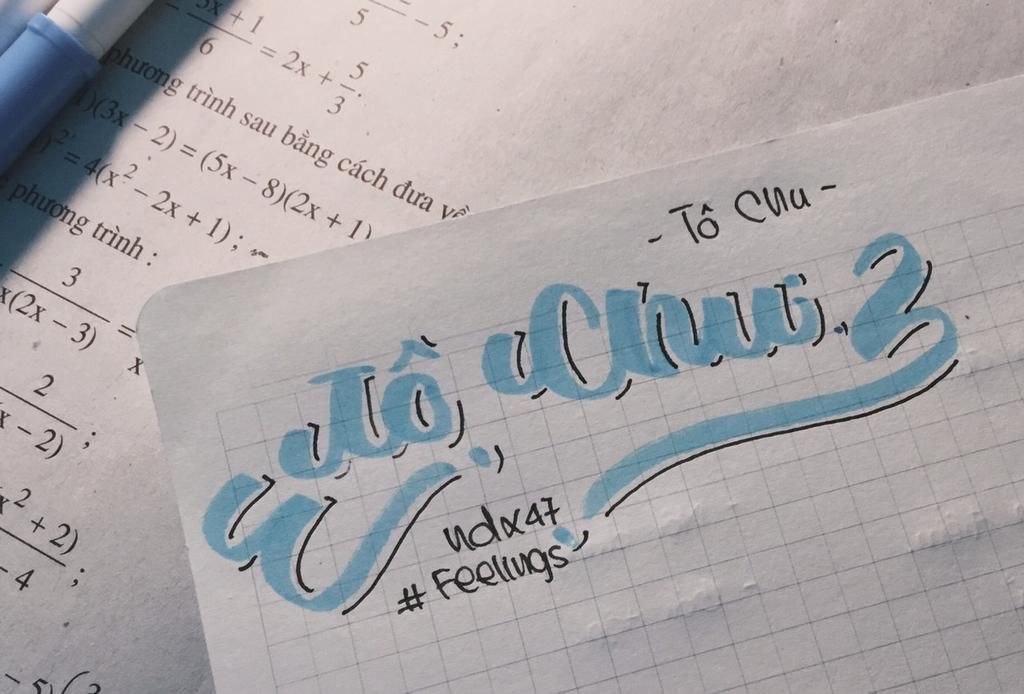 3x + 1/6 = 2x + 5/3.
5 - 5 ;
phương trình sau bằng cách đưa về
)(3x – 2) = (5x – 8)(2x + 1)
)² = 4(x² – 2x + 1) ;
phương trình :
3/x(2x – 3) =
x
2/(x – 2) ;
x² + 2)/– 4 ;
– 5)
- Tô Chu -
Tô Chu
ndx47
# Feelings